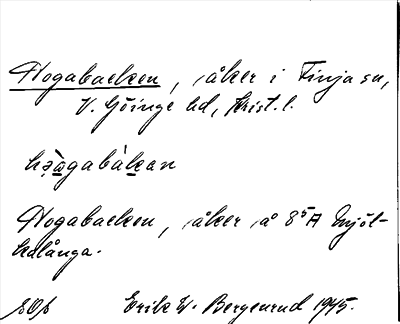 Hogabacken, åker i Finja sn,
V. Göinge hd, Krist. l.
hɔ̀agabàkan
Hogabacken, åker å 8⁵A Mjöl-
kalånga.
Erik W. Bergenrud 1945.